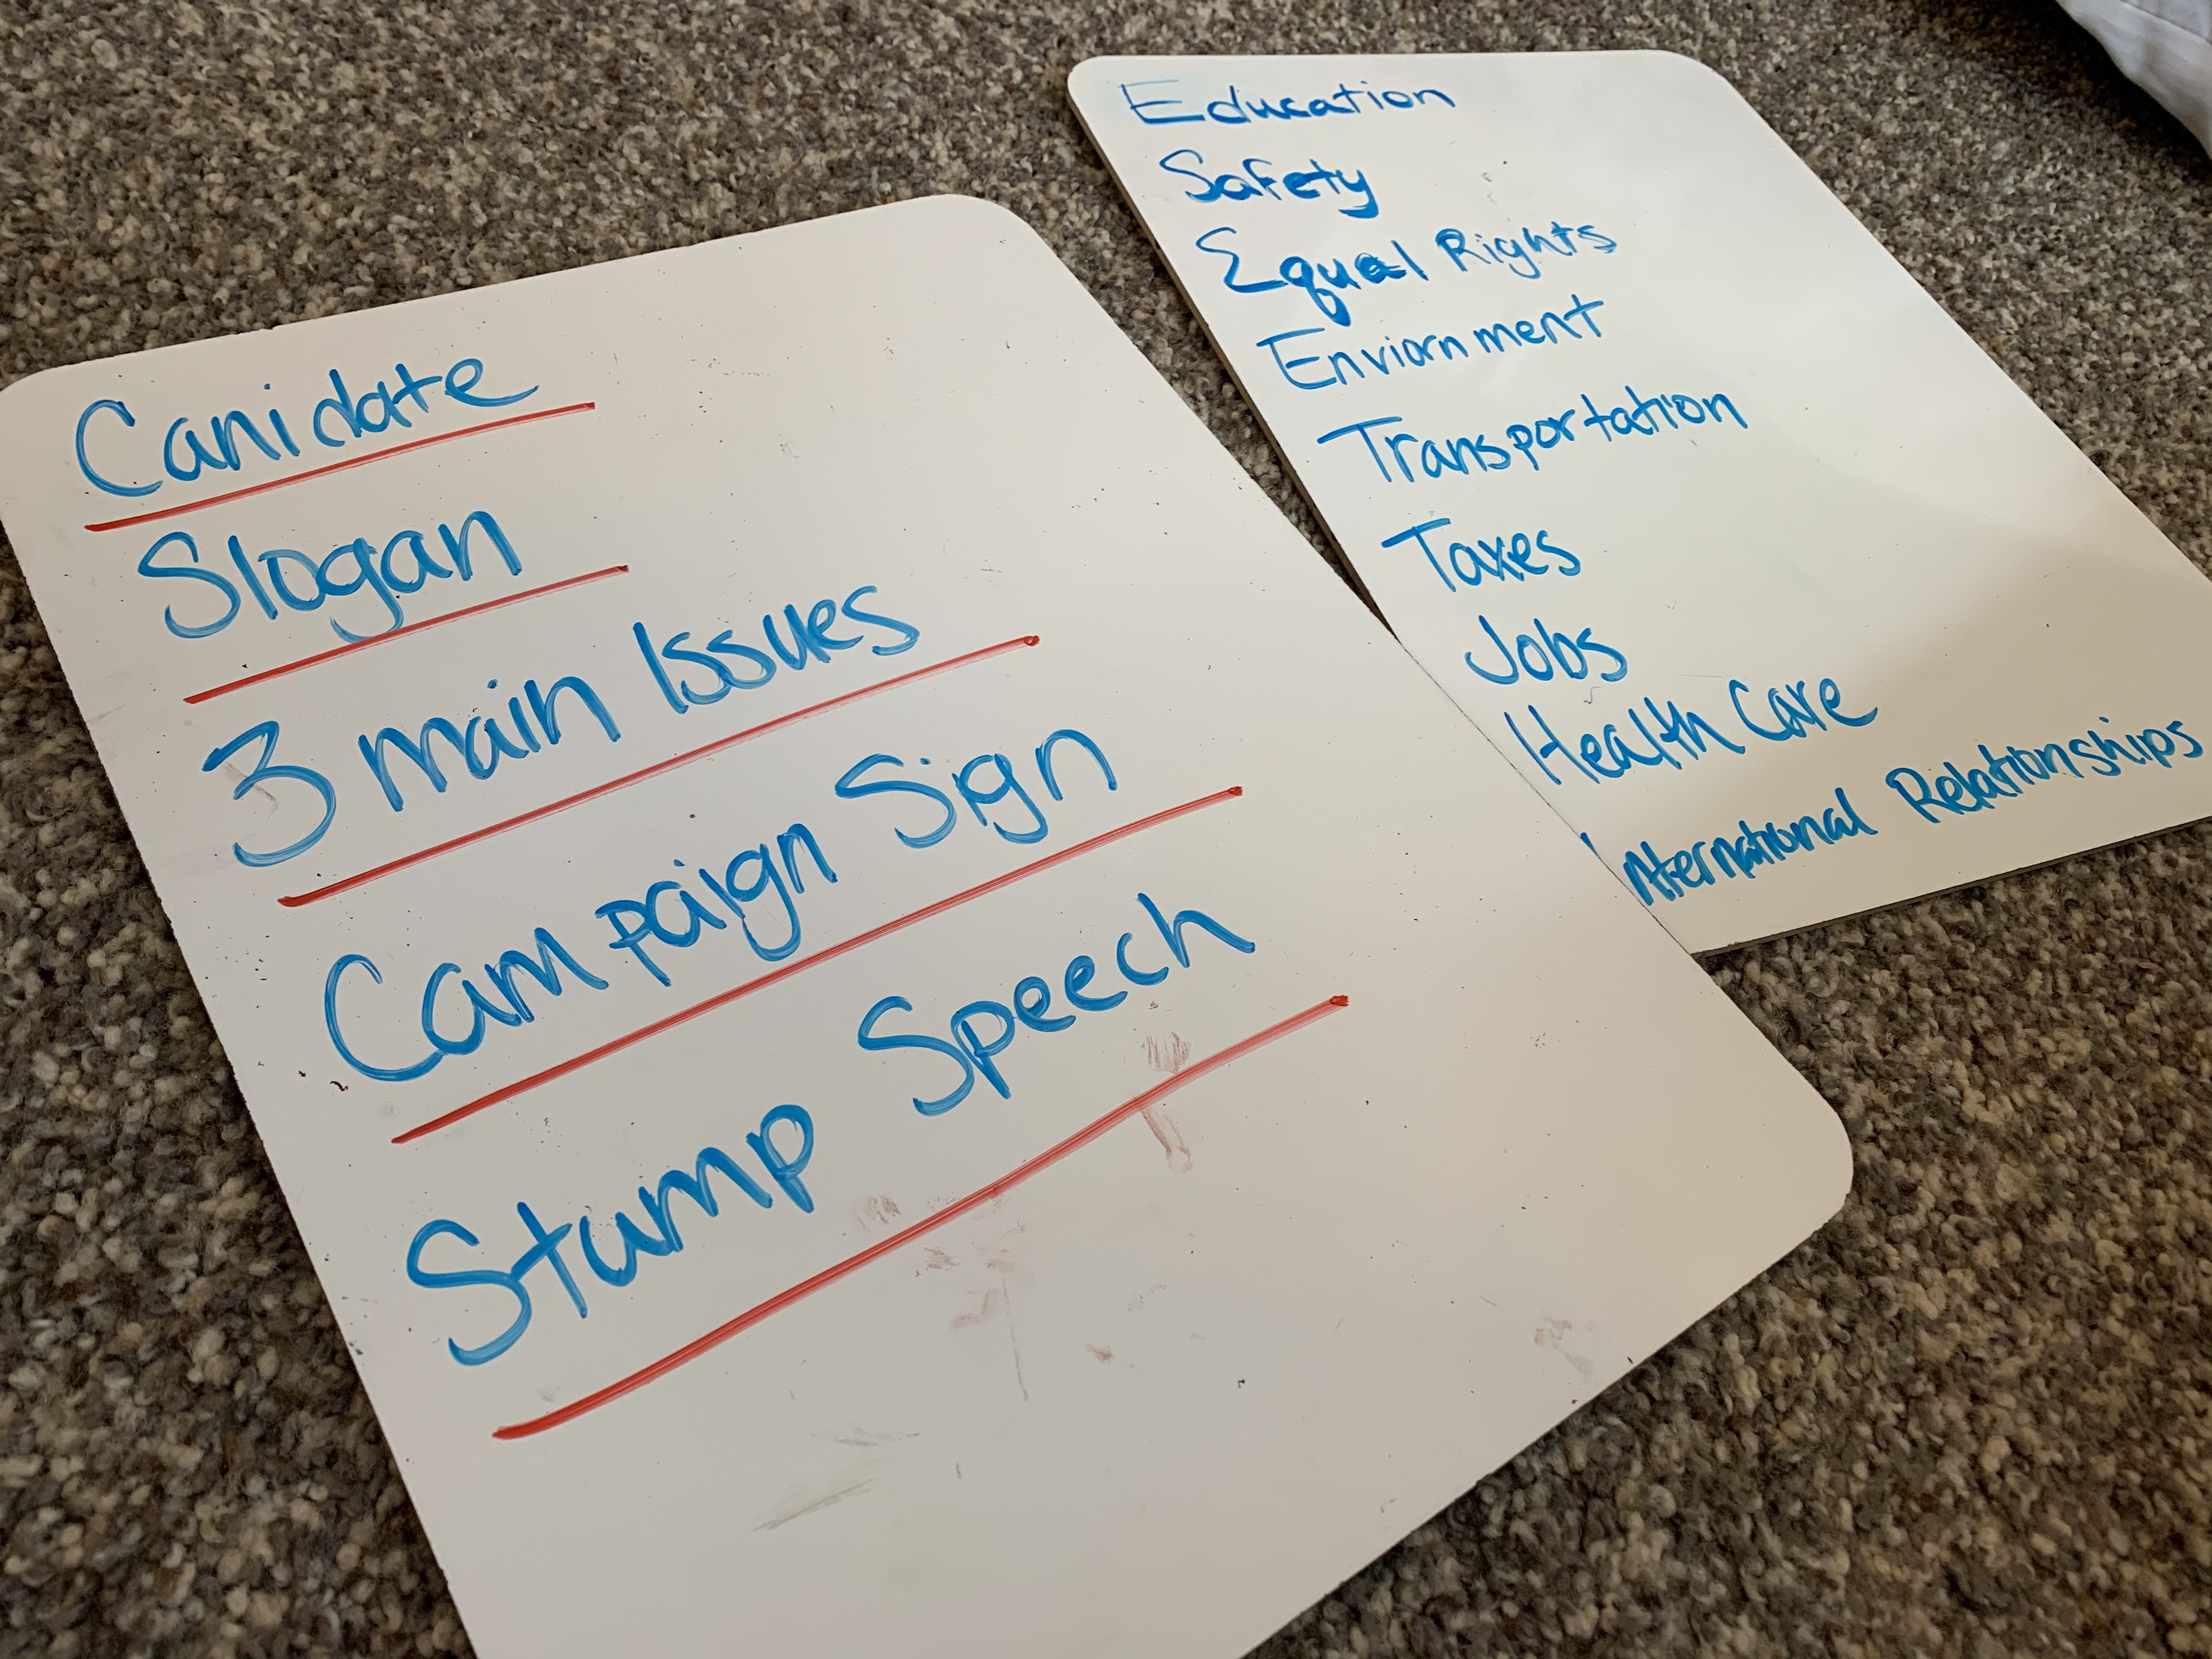 Canidate
Slogan
3 main Issues
Campaign Sign
Stump Speech
Education
Safety
Equal Rights
Enviornment
Transportation
Taxes
Jobs
Health Care
International Relationships